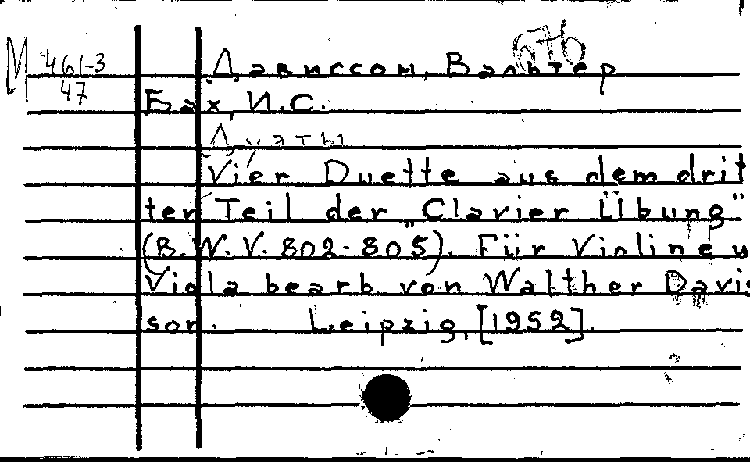 М 461-3
47
676
Дависсон, Вальтер
Бах, И.С.
Дуэты
Vier Duette aus dem drit
ten Teil der „Clavier Übung"
(B.W.V. 802-805). Für Violine u
Viola bearb von Walther Davis
son. Leipzig, [1952].